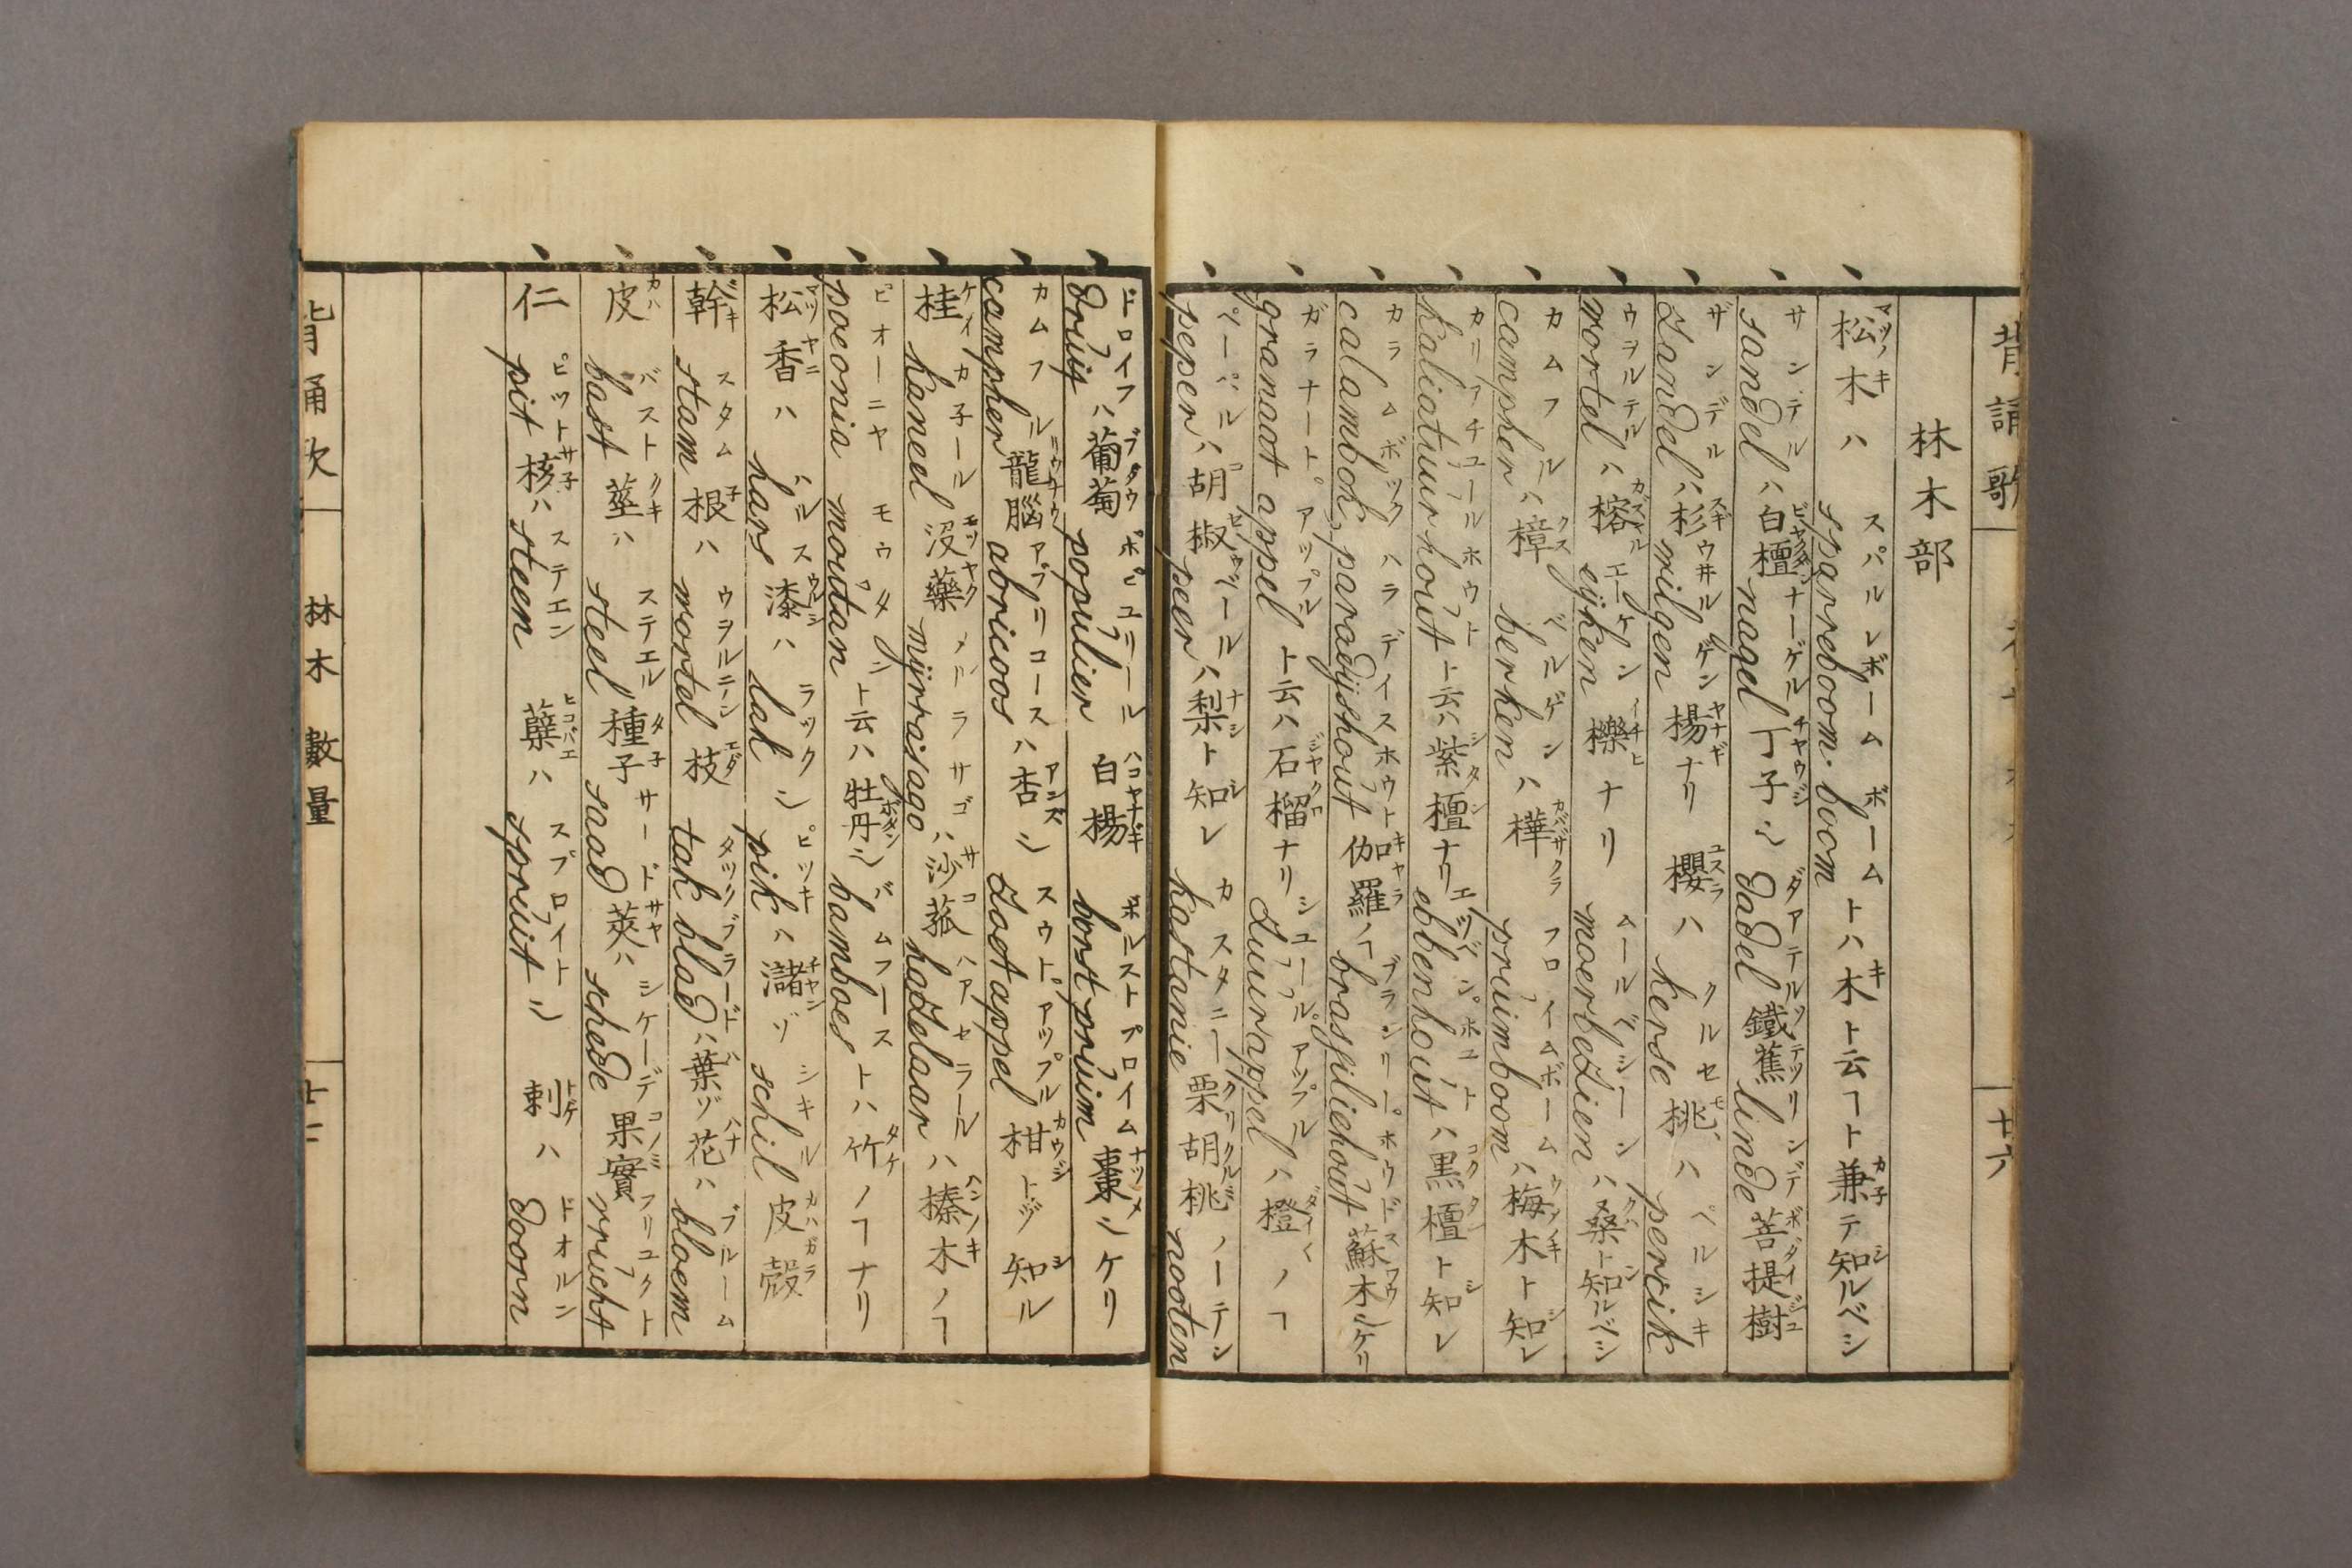 背誦歌
十六
林木部
松木ハ sparreboom. boom トハ木ト云ヿト兼テ知ルベシ
sandel ハ白檀 nagel 丁子ニ dadel 鐵蕉 linde 菩提樹
zandel ハ杉 wilgen 楊ナリ 櫻ハ kerse 桃ハ persik
wortel ハ榕 eijken 櫟ナリ moerbezien ハ桑ト知ルベシ
campher ハ樟 berken ハ樺 pruimboom ハ梅木ト知レ
kaliatuurhout ト云ハ紫檀ナリ ebbenhout ハ黒檀ト知レ
calambok, paradijshout 伽羅ノヿ brasjiliehout 蘇木シケリ
granaat appel ト云ハ石榴ナリ zuurappel ハ橙ノヿ
peper ハ胡椒 peer ハ梨ト知レ kastanie 栗胡桃 nooten
druif ハ葡萄 populier 白楊 borst pruim 棗シケリ
campher 龍腦 abricoos ハ杏シ zoet appel 柑トゾ知ル
桂 kaneel 沒藥 mijrra sago ハ沙菰 hazelaar ハ榛木ノヿ
poeonia moutan ト云ハ牡丹シ bamboes トハ竹ノヿナリ
松香ハ hars 漆ハ lak シ pik ハ瀦ゾ schil 皮殼
幹 stam 根ハ wortel 枝 tak blad ハ葉ゾ花ハ bloem
皮 bast 莖ハ steel 種子 saad 莢ハ schede 果實 vrucht
仁 pit 核ハ steen 蘖ハ spruit シ 刺ハ doorn
背誦歌
林木 數量